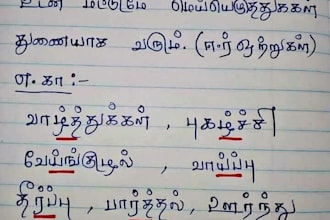 உடன் மட்டுமே மெய்யெழுத்துக்கள்
துணையாக வரும். (ஈர் ஒற்றுகள்)
எ.கா :-
வாழ்த்துக்கள் , புகழ்ச்சி
வேய்ங்குழல் , வாய்ப்பு
தீர்ப்பு , பார்த்தல், ஊர்ந்து